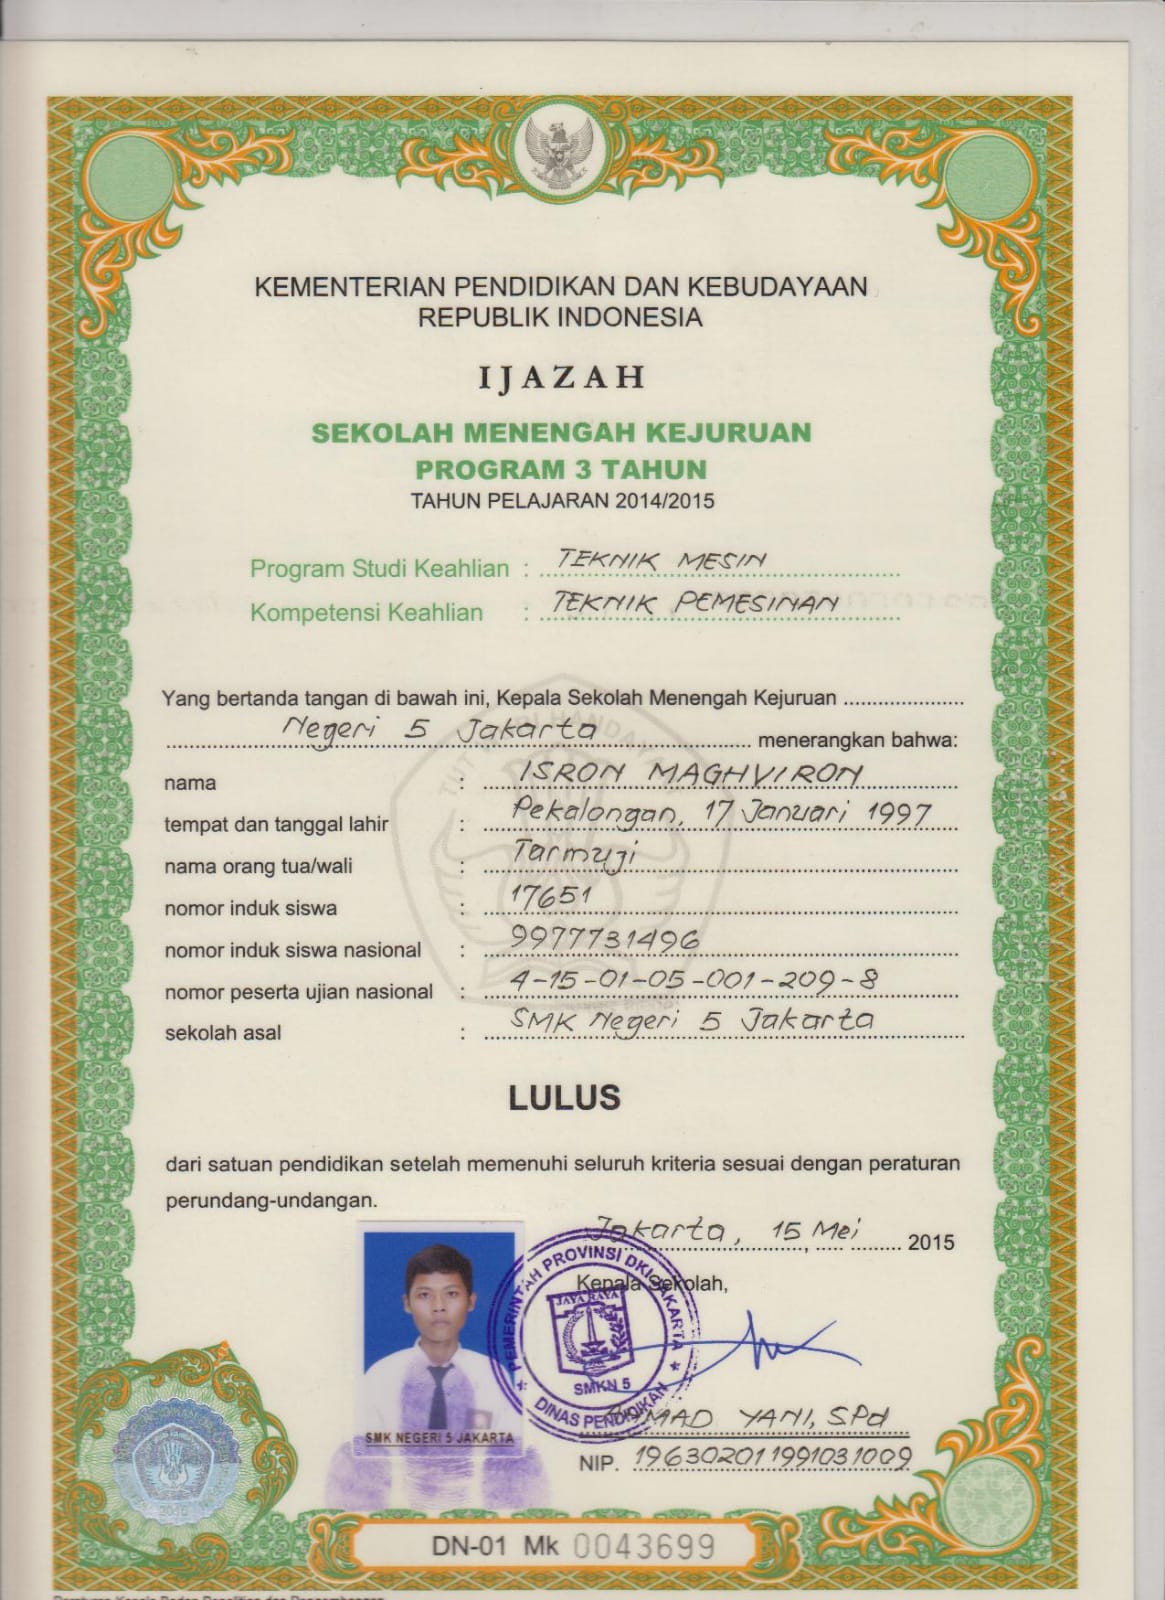 KEMENTERIAN PENDIDIKAN DAN KEBUDAYAAN
REPUBLIK INDONESIA
IJAZAH
SEKOLAH MENENGAH KEJURUAN
PROGRAM 3 TAHUN
TAHUN PELAJARAN 2014/2015
Program Studi Keahlian : TEKNIK MESIN
Kompetensi Keahlian : TEKNIK PEMESINAN
Yang bertanda tangan di bawah ini, Kepala Sekolah Menengah Kejuruan ....................
Negeri 5 Jakarta menerangkan bahwa:
nama : ISRON MAGHVIRON
tempat dan tanggal lahir : Pekalongan, 17 Januari 1997
nama orang tua/wali : Tarmuji
nomor induk siswa : 17651
nomor induk siswa nasional : 9977731496
nomor peserta ujian nasional : 4-15-01-05-001-209-8
sekolah asal : SMK Negeri 5 Jakarta
LULUS
dari satuan pendidikan setelah memenuhi seluruh kriteria sesuai dengan peraturan
perundang-undangan.
Jakarta, 15 Mei 2015
Kepala Sekolah,
PEMERINTAH PROVINSI DKI JAKARTA
JAYA RAYA
SMKN 5
DINAS PENDIDIKAN
AHMAD YANI, SPd
NIP. 196302011991031009
SMK NEGERI 5 JAKARTA
DN-01 Mk 0043699